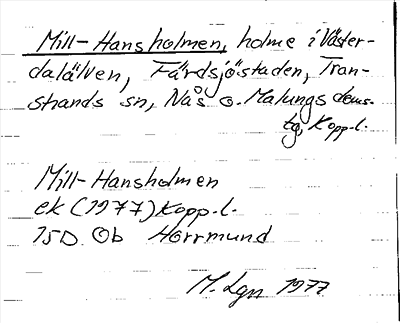 Mill-Hansholmen, holme i Väster-
dalälven, Färdsjöstaden, Tran-
strands sn, Nås o. Malungs doms-
tg, Kopp.l.
Mill-Hansholmen
ek (1977) Kopp.l.
15D Ob Horrmund
M. Lgn 1977